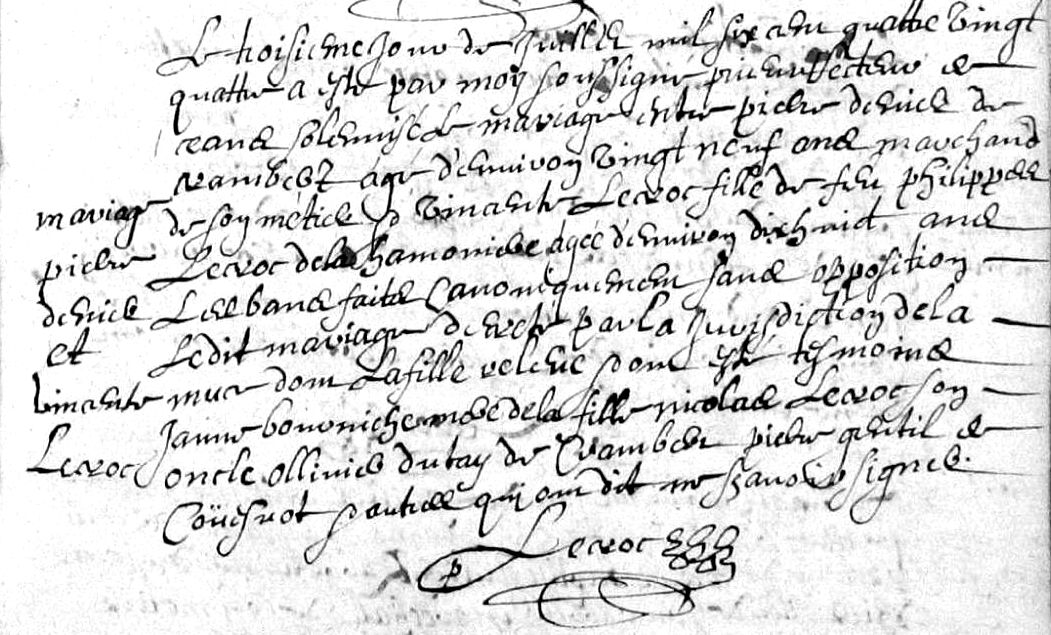 Le troisieme Jour de Juillet mil six cent quattre vingt
quattre a este par moy soussigné prieur Recteur de
solemnisé le mariage entre pierre denis de
agé d'environ vingt neuf ans marchand
de son métier & vincente Lecroc fille de feu philippes
Lecroc de la hamonière agée d'environ dixhuict ans
Les bans faits Canoniquement sans opposition
Ledit mariage decreté par la Jurisdiction de la
dont la fille releve & ont esté tesmoins
Janne mere de la fille nicolas Lecroc son
oncle ollivier dutay de Crambert pierre gentil de
& autres qui ont dit ne sçavoir signer.
mariage
pierre
denis
et
vincente
Lecroc
Lecroc